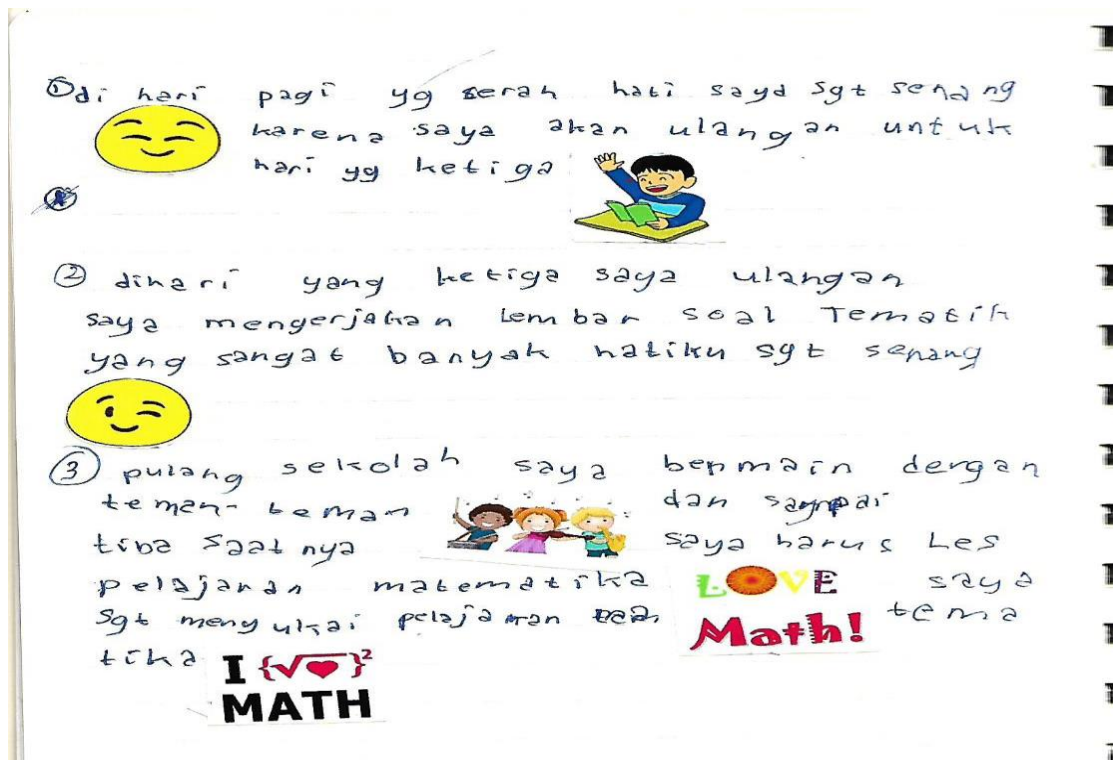 ① di hari pagi yg serah hati saya sgt senang
karena saya akan ulangan untuk
hari yg ketiga
② dihari yang ketiga saya ulangan
saya mengerjakan lembar soal Tematik
yang sangat banyak hatiku sgt senang
③ pulang sekolah saya bermain dergan
teman-teman dan sampai
tiba saatnya saya harus Les
pelajaran matematika LOVE Math! saya
sgt menyukai pelajaran tema
tika I {√♥}² MATH